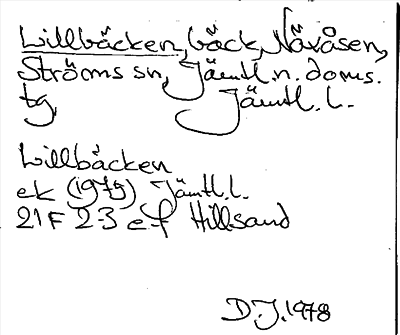 Lillbäcken, bäck, Näxåsen,
Ströms sn, Jämtl. n. doms.
tg, Jämtl. l.
Lillbäcken
ek (1975) Jämtl. l.
21F 2-3 e-f Hillsand
D.J. 1978